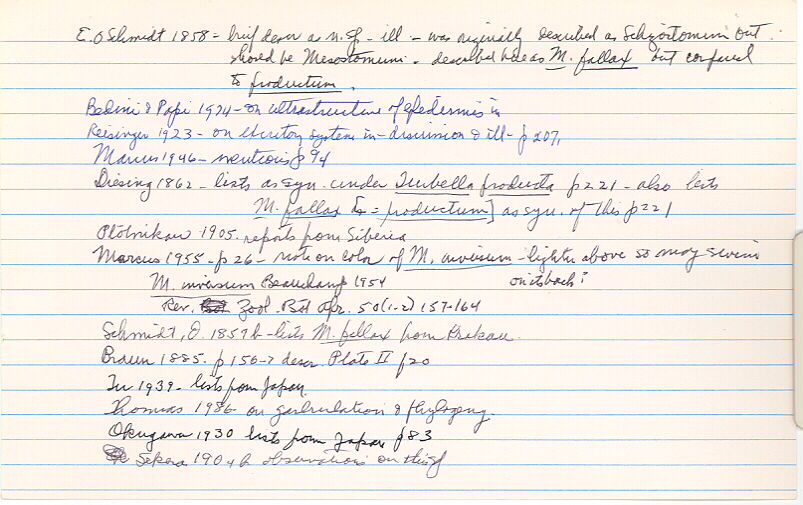 E. O Schmidt 1858 - brief descr as n. sp. - ill - was originally described as Schizostomum but
should be Mesostomum. described here as M. fallax but compared
to productum.
Bedini & Papi 1974 - on ultrastructure of epidermis in
Reisinger 1923 - on excretory system in - discussion & ill - p 207,
Marcus 1946 - mentions p 94
Diesing 1862 - lists as syn. under Turbella producta p 221 - also lists
M. fallax = productum] as syn. of this p 221
Plotnikow 1905. reports from Siberia
Marcus 1955 - p 26 - note on color of M. inversum - lighter above so may swim
on its back?
M. inversum Beauchamp 1954
Rev. Zool. Bot Afr. 50 (1-2) 157-164
Schmidt, O. 1859b - lists M. fallax from Krakau.
Braun 1885. p 156-7 descr. Plate II f 20
1939 - lists from Japan.
Thomas 1986 - on gastrulation & phylogeny.
Okugawa 1930 lists from Japan p 83
Sekera 1904b observations on this sp